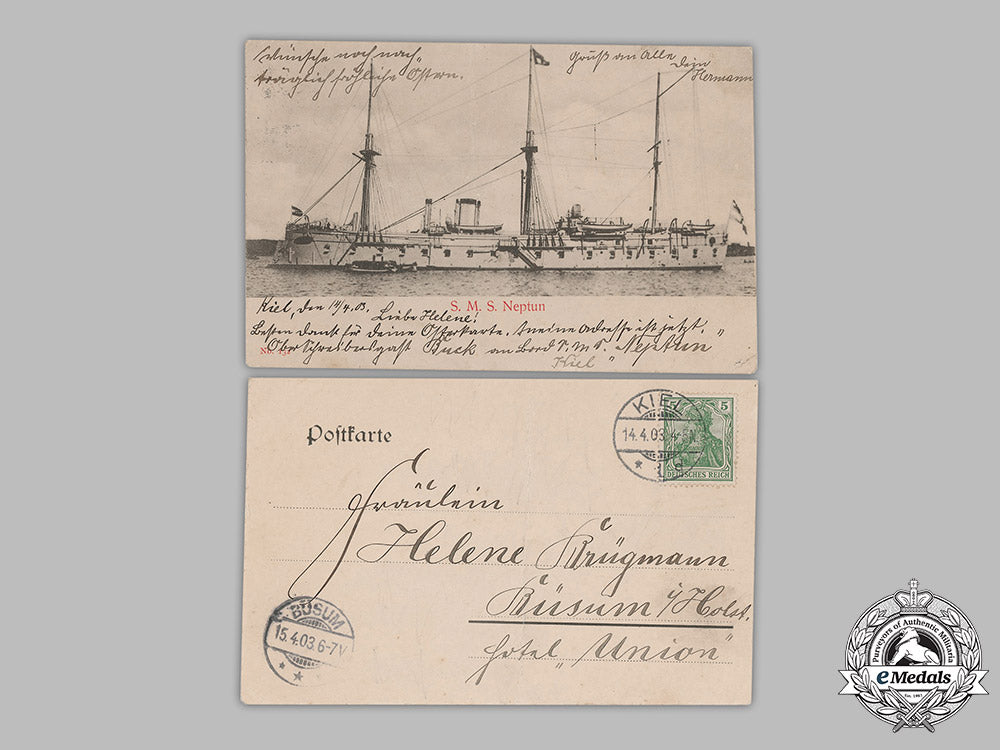 Wünsche noch nach„
träglich fröhliche Ostern.
Gruß an Alle
Dein
Hermann
S. M. S. Neptun
Kiel, den 14/4.03.
Liebe Helene!
Besten Dank für deine Osterkarte. Meine Adresse ist jetzt,
Ober Schreibersgast Buck an Bord S. M. S. „Neptun"
Kiel
Postkarte
KIEL
14.4.03. 4-5N
5
DEUTSCHES REICH
Fräulein
Helene Krügmann
Büsum i/Holst.
Hotel „Union"
BÜSUM
15.4.03. 6-7V
Purveyors of Authentic Militaria
eMedals
Est. 1967